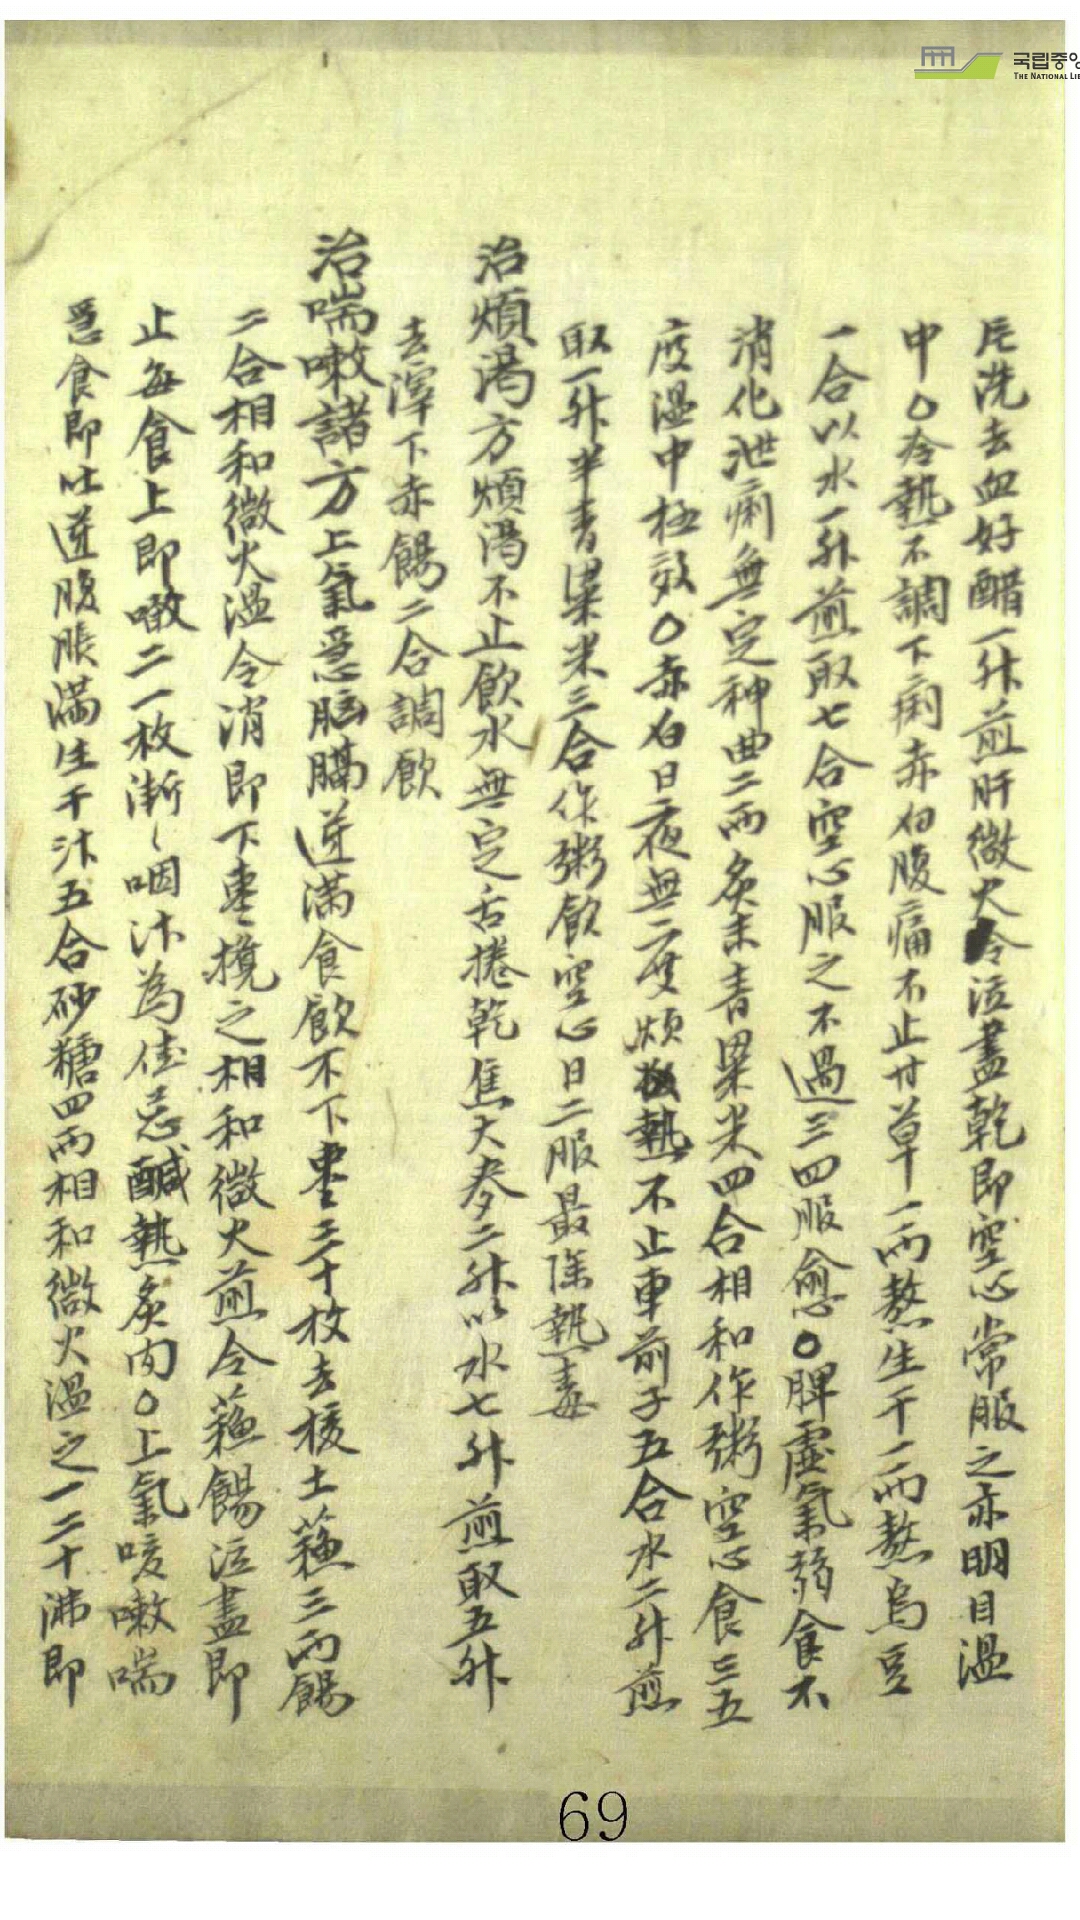 国립중앙
THE NATIONAL LIB
片洗去血好醋一升煎肝微火令泣盡乾即空心常服之亦明目溫
中○冷熱不調下痢赤白腹痛不止甘草一兩熬生干一兩熬烏豆
一合以水一升煎取七合空心服之不過三四服愈○脾虛氣弱食不
消化泄痢無定神曲二兩炙末青粱米四合相和作粥空心食三五
度溫中極效○赤白日夜無度煩熱不止車前子五合水二升煎
取一升半青粱米三合作粥飮空心日二服最除熱毒
治煩渴方煩渴不止飮水無定舌捲乾焦大麥二升以水七升煎取五升
去滓下赤餳二合調飮
治喘嗽諸方上氣急胸膈逆滿食飮不下棗三十枚去核土蘓三兩餳
二合相和微火溫令消即下棗攪之相和微火煎令蘓餳泣盡即
止每食上即噉一二枚漸〻咽汁為佳忌鹹熱炙肉○上氣咳嗽喘
急食即吐逆腹脹滿生干汁五合砂糖四兩相和微火溫之一二十沸即
69